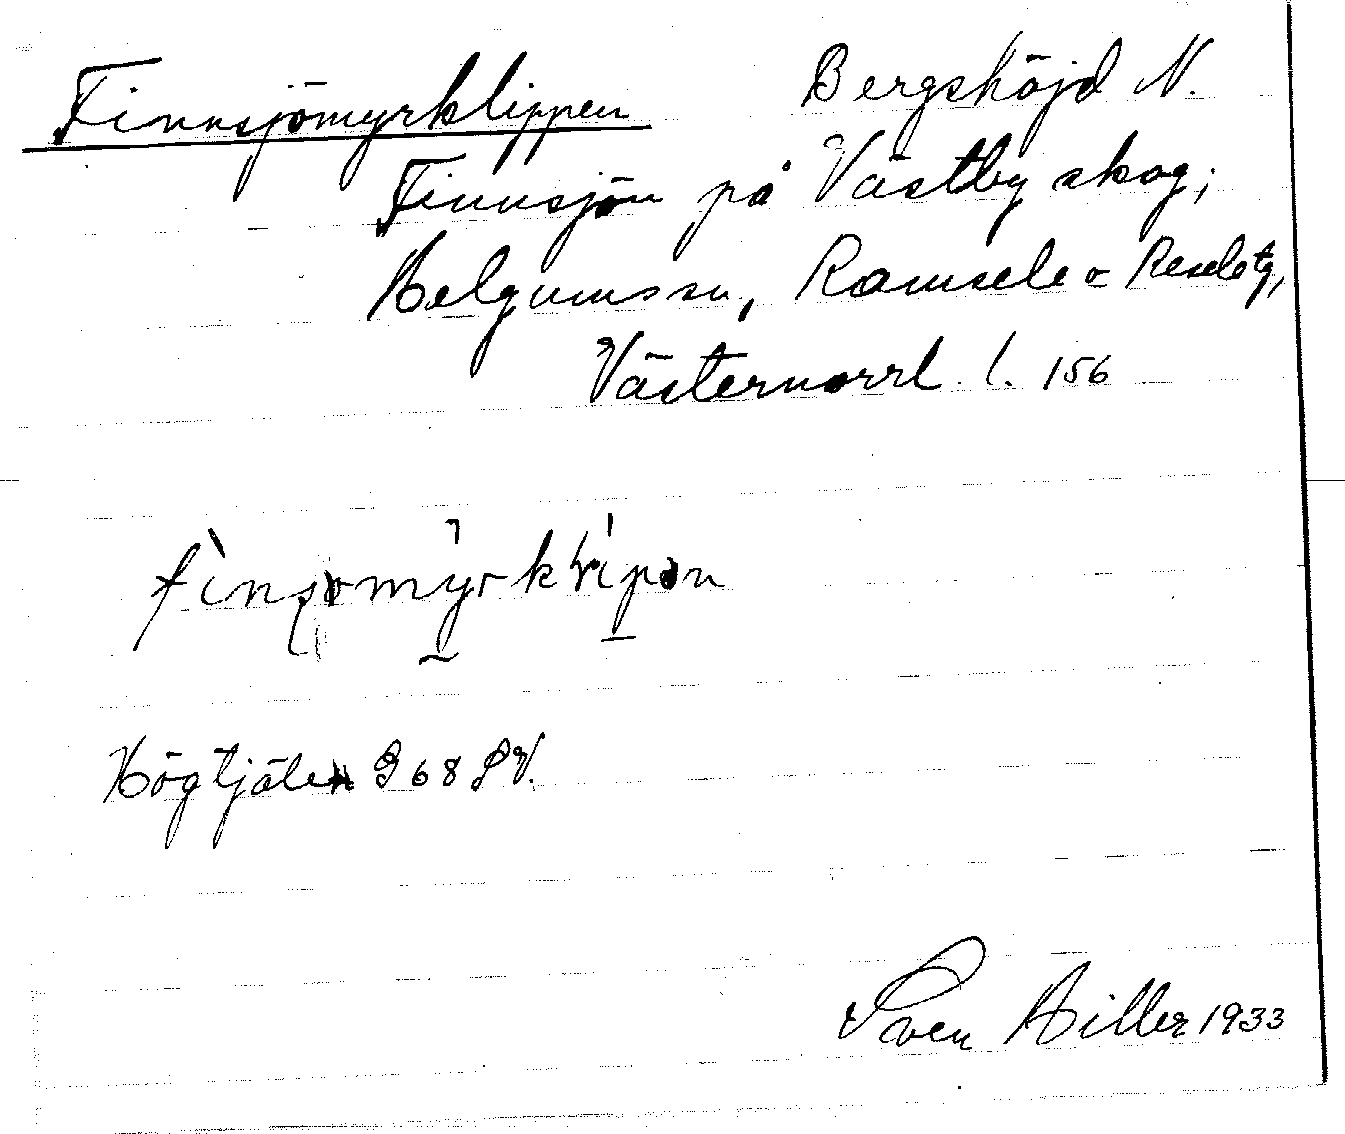 Finnsjömyrklippen Bergshöjd N.
Finnsjön på Västby skog;
Helgumssn, Ramsele o Reseletg,
Västernorrl. l. 156
Högtjälen G 68 SV.
Sven Hiller 1933